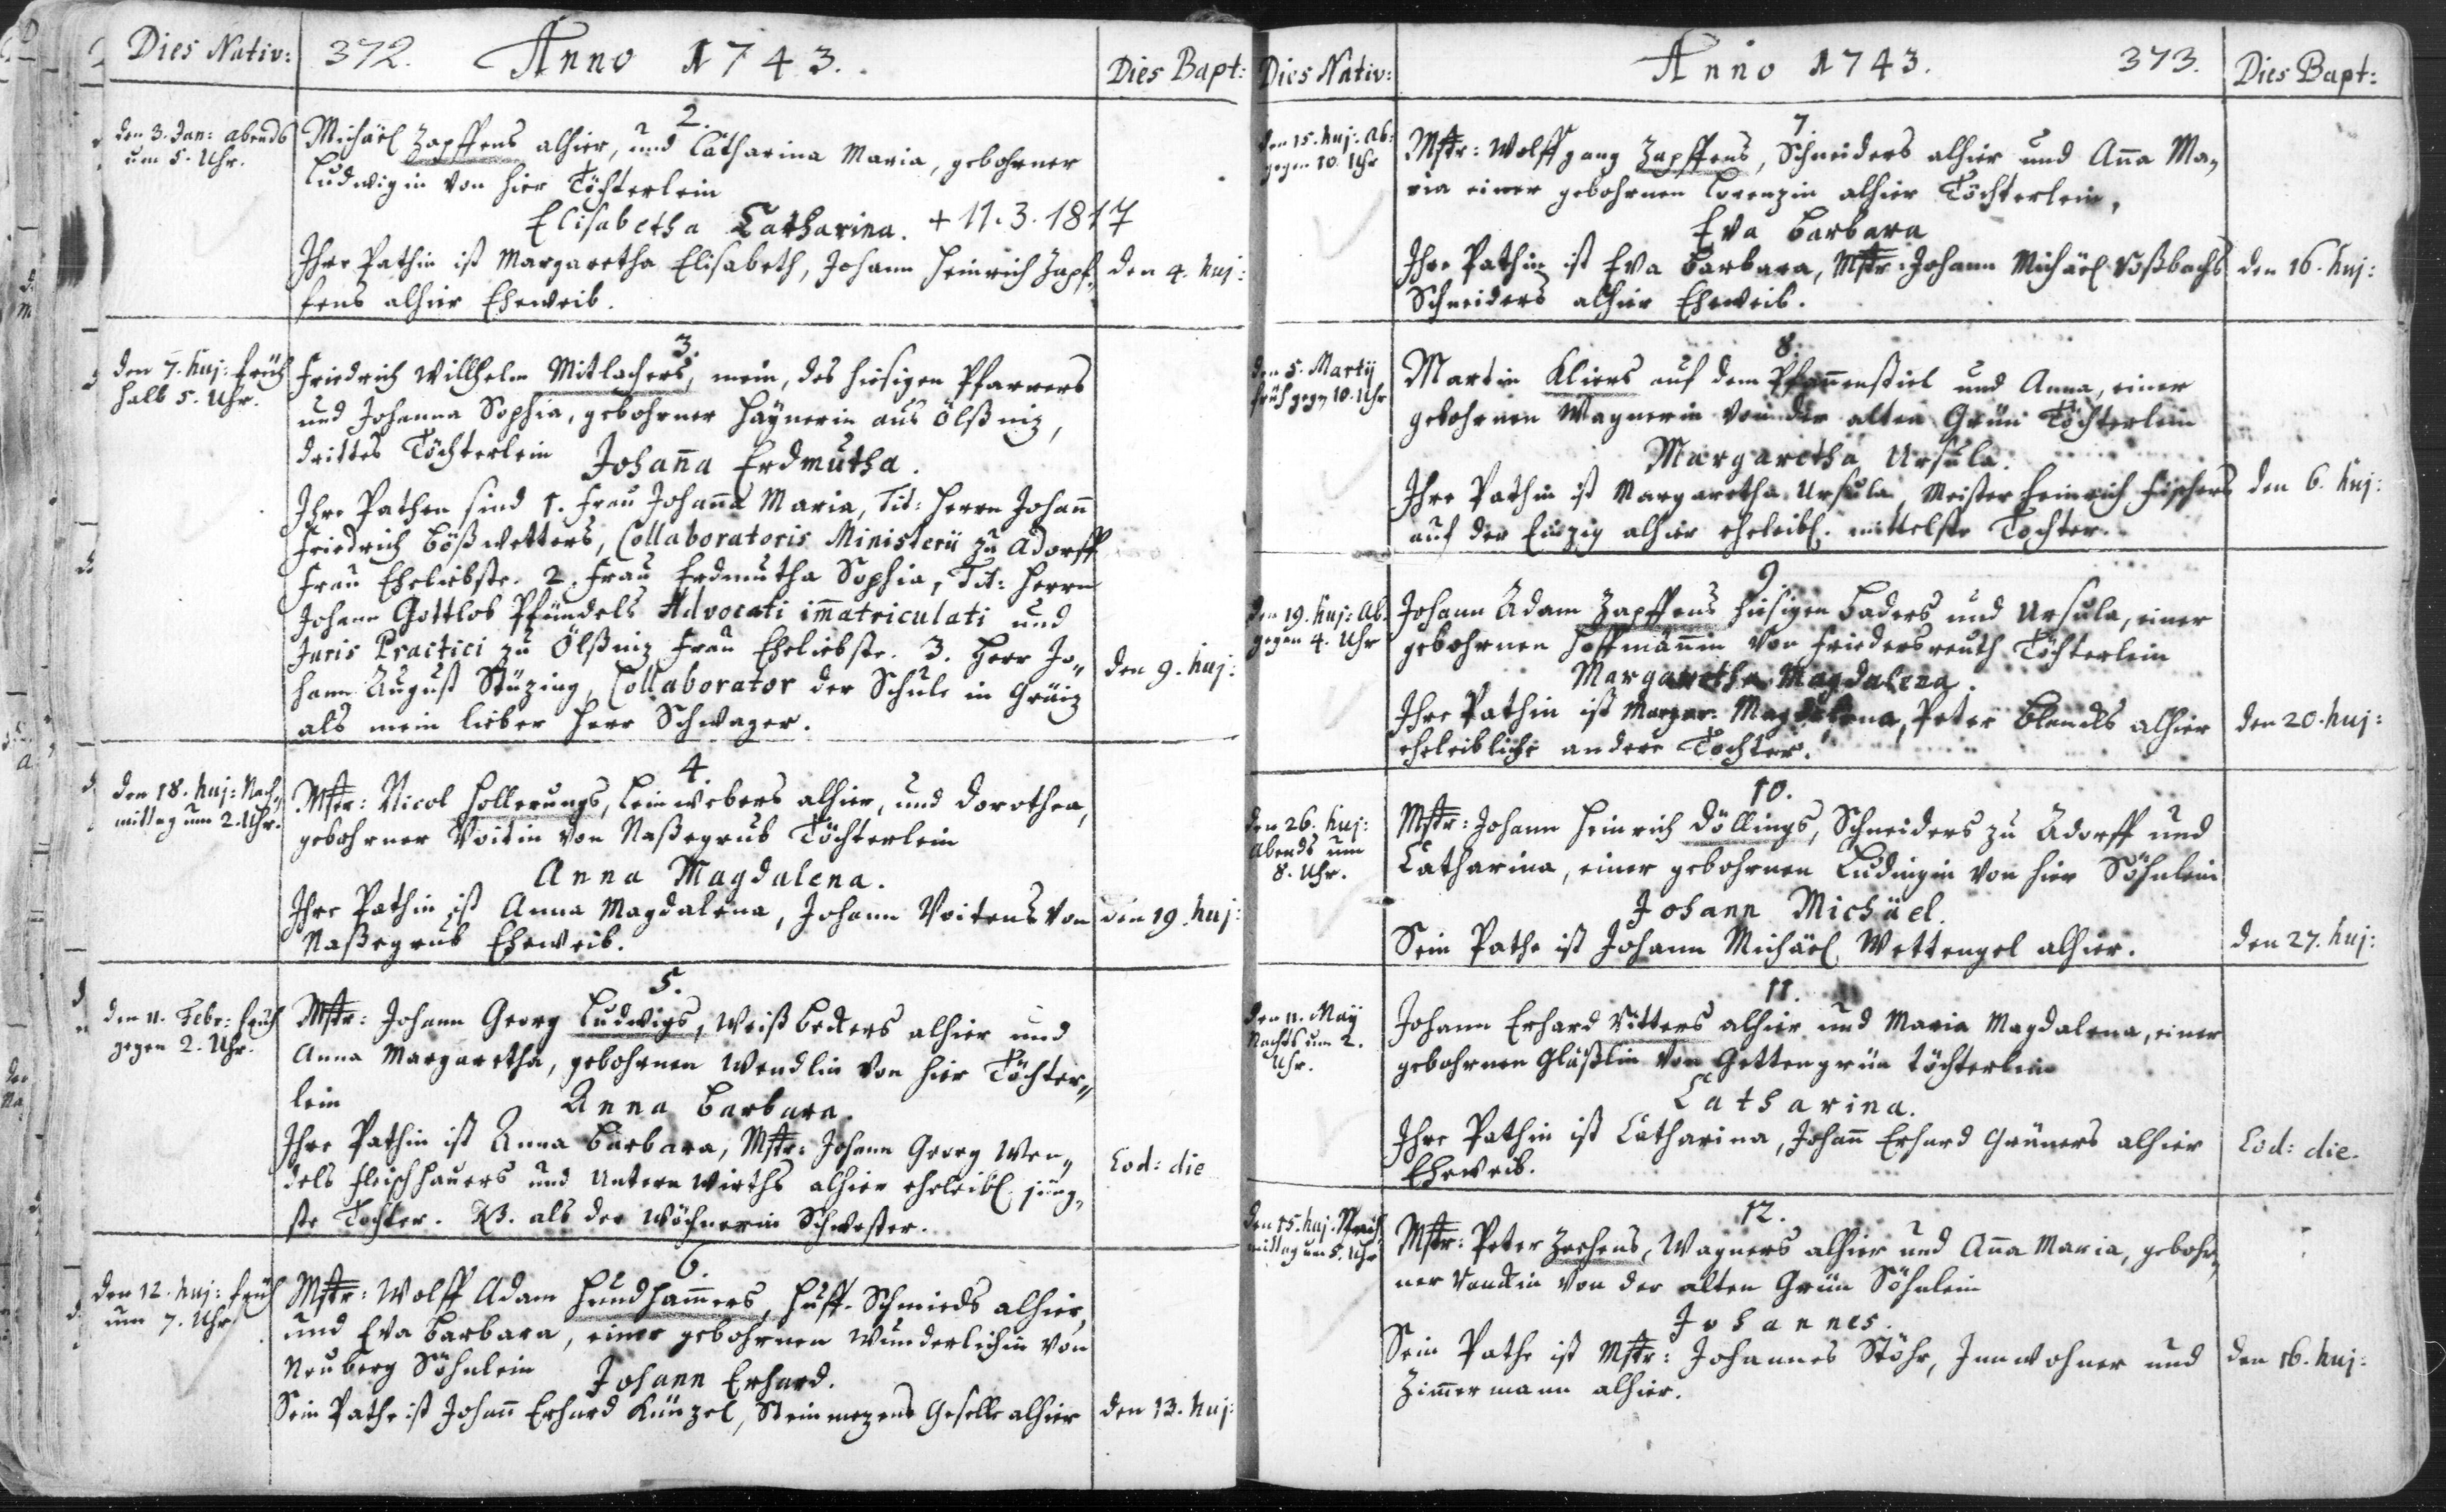 Dies Nativ:
372. Anno 1743.
Dies Bapt:
den 3. Jan: abends
um 5. Uhr.
2.
Michäel Zapffens alhier, und Catharina Maria, gebohrner
Ludwigin von hier Töchterlein
Elisabetha Catharina. + 11.3.1817
Ihre Pathin ist Margaretha Elisabeth, Johann Heinrich Zapf-
fens alhier Eheweib.
den 4. huj:
den 7. huj: früh
halb 5. Uhr.
3.
Friedrich Willhelm Mitlachers, mein, des hiesigen Pfarrers
und Johanna Sophia, gebohrner Haÿnerin aus Ölßniz,
drittes Töchterlein Johan̄a Erdmutha.
Ihre Pathen sind 1. Frau Johan̄a Maria, Tit: Herrn Johan̄
Friedrich Bößwetters, Collaboratoris Ministerii zu Adorff
Frau Eheliebste. 2. Frau Erdmutha Sophia, Tit: Herrn
Johann Gottlob Pfündels Advocati im̄atriculati und
Juris Practici zu Ölßniz Frau Eheliebste. 3. Herr Jo-
hann August Stüzing, Collaborator der Schule in Gräiz
als mein lieber Herr Schwager.
den 9. huj:
den 18. huj: Nach-
mittag um 2. Uhr.
4.
Mstr: Nicol Hollerungs, Leinwebers alhier, und Dorothea,
gebohrner Voitin von Naßegrub Töchterlein
Anna Magdalena.
Ihre Pathin ist Anna Magdalena, Johann Voitens von
Naßegrub Eheweib.
den 19. huj:
den 11. Febr: früh
gegen 2. Uhr.
5.
Mstr: Johann Georg Ludwigs, Weiß Beckers alhier und
Anna Margaretha, gebohrnen Wendlin von hier Töchter-
lein Anna Barbara.
Ihre Pathin ist Anna Barbara, Mstr: Johann Georg Wen-
dels Fleischhauers und Untern Wirths alhier eheleibl. jüng-
ste Tochter. NB. als der Wöchnerin Schwester.
Eod: die
den 12. huj: früh
um 7. Uhr
6.
Mstr: Wolff Adam Hundham̄ers, Huff-Schmieds alhier,
und Eva Barbara, einer gebohrnen Wunderlichin von
Neuberg Söhnlein Johann Erhard.
Sein Pathe ist Johan̄ Erhard Künzel, Steinmezens Geselle alhier
den 13. huj:
Dies Nativ:
Anno 1743. 373.
Dies Bapt:
den 15. huj: Ab:
gegen 10. Uhr
7.
Mstr: Wolffgang Zapffens, Schneiders alhier und An̄a Ma-
ria einer gebohrnen Lorenzin alhier Töchterlein,
Eva Barbara
Ihre Pathin ist Eva Barbara, Mstr: Johann Michäel Voßbachs
Schneiders alhier Eheweib.
den 16. huj:
den 5. Martÿ
früh gegen 10. Uhr
8.
Martin Kliers auf dem Pfan̄enstiel und Anna, einer
gebohrnen Wagnerin von der alten Grün Töchterlein
Margaretha Ursula.
Ihre Pathin ist Margaretha Ursula, Meister Heinrich Fischers
auf der alhier eheleibl. mittelste Tochter.
den 6. huj:
den 19. huj: Ab.
gegen 4. Uhr
9
Johann Adam Zapffens hiesigen Baders und Ursula, einer
gebohrnen Hoffmän̄in von Friedersreuth Töchterlein
Margaretha Magdalena.
Ihre Pathin ist Margar: Magdalena, Peter alhier
eheleibliche andere Tochter.
den 20. huj:
den 26. huj:
Abends um
8. Uhr.
10.
Mstr: Johann Heinrich Döllings, Schneiders zu Adorff und
Catharina, einer gebohrnen Ludwigin von hier Söhnlein
Johann Michäel.
Sein Pathe ist Johann Michäel Wettengel alhier.
den 27. huj:
den 11. May
Nachts um 2.
Uhr.
11.
Johann Erhard Ritters alhier und Maria Magdalena, einer
gebohrnen Gläßlin von Gettengrün Töchterlein
Catharina.
Ihre Pathin ist Catharina, Johan̄ Erhard Grüners alhier
Eheweib.
Eod: die.
den 15. huj. Nach-
mittag um 5. Uhr
12.
Mstr: Peter Zeehens, Wagners alhier und An̄a Maria, gebohr-
ner von der alten Grün Söhnlein
Johannes.
Sein Pathe ist Mstr: Johannes Stöhr, Innwohner und
Zim̄ermann alhier.
den 16. huj: